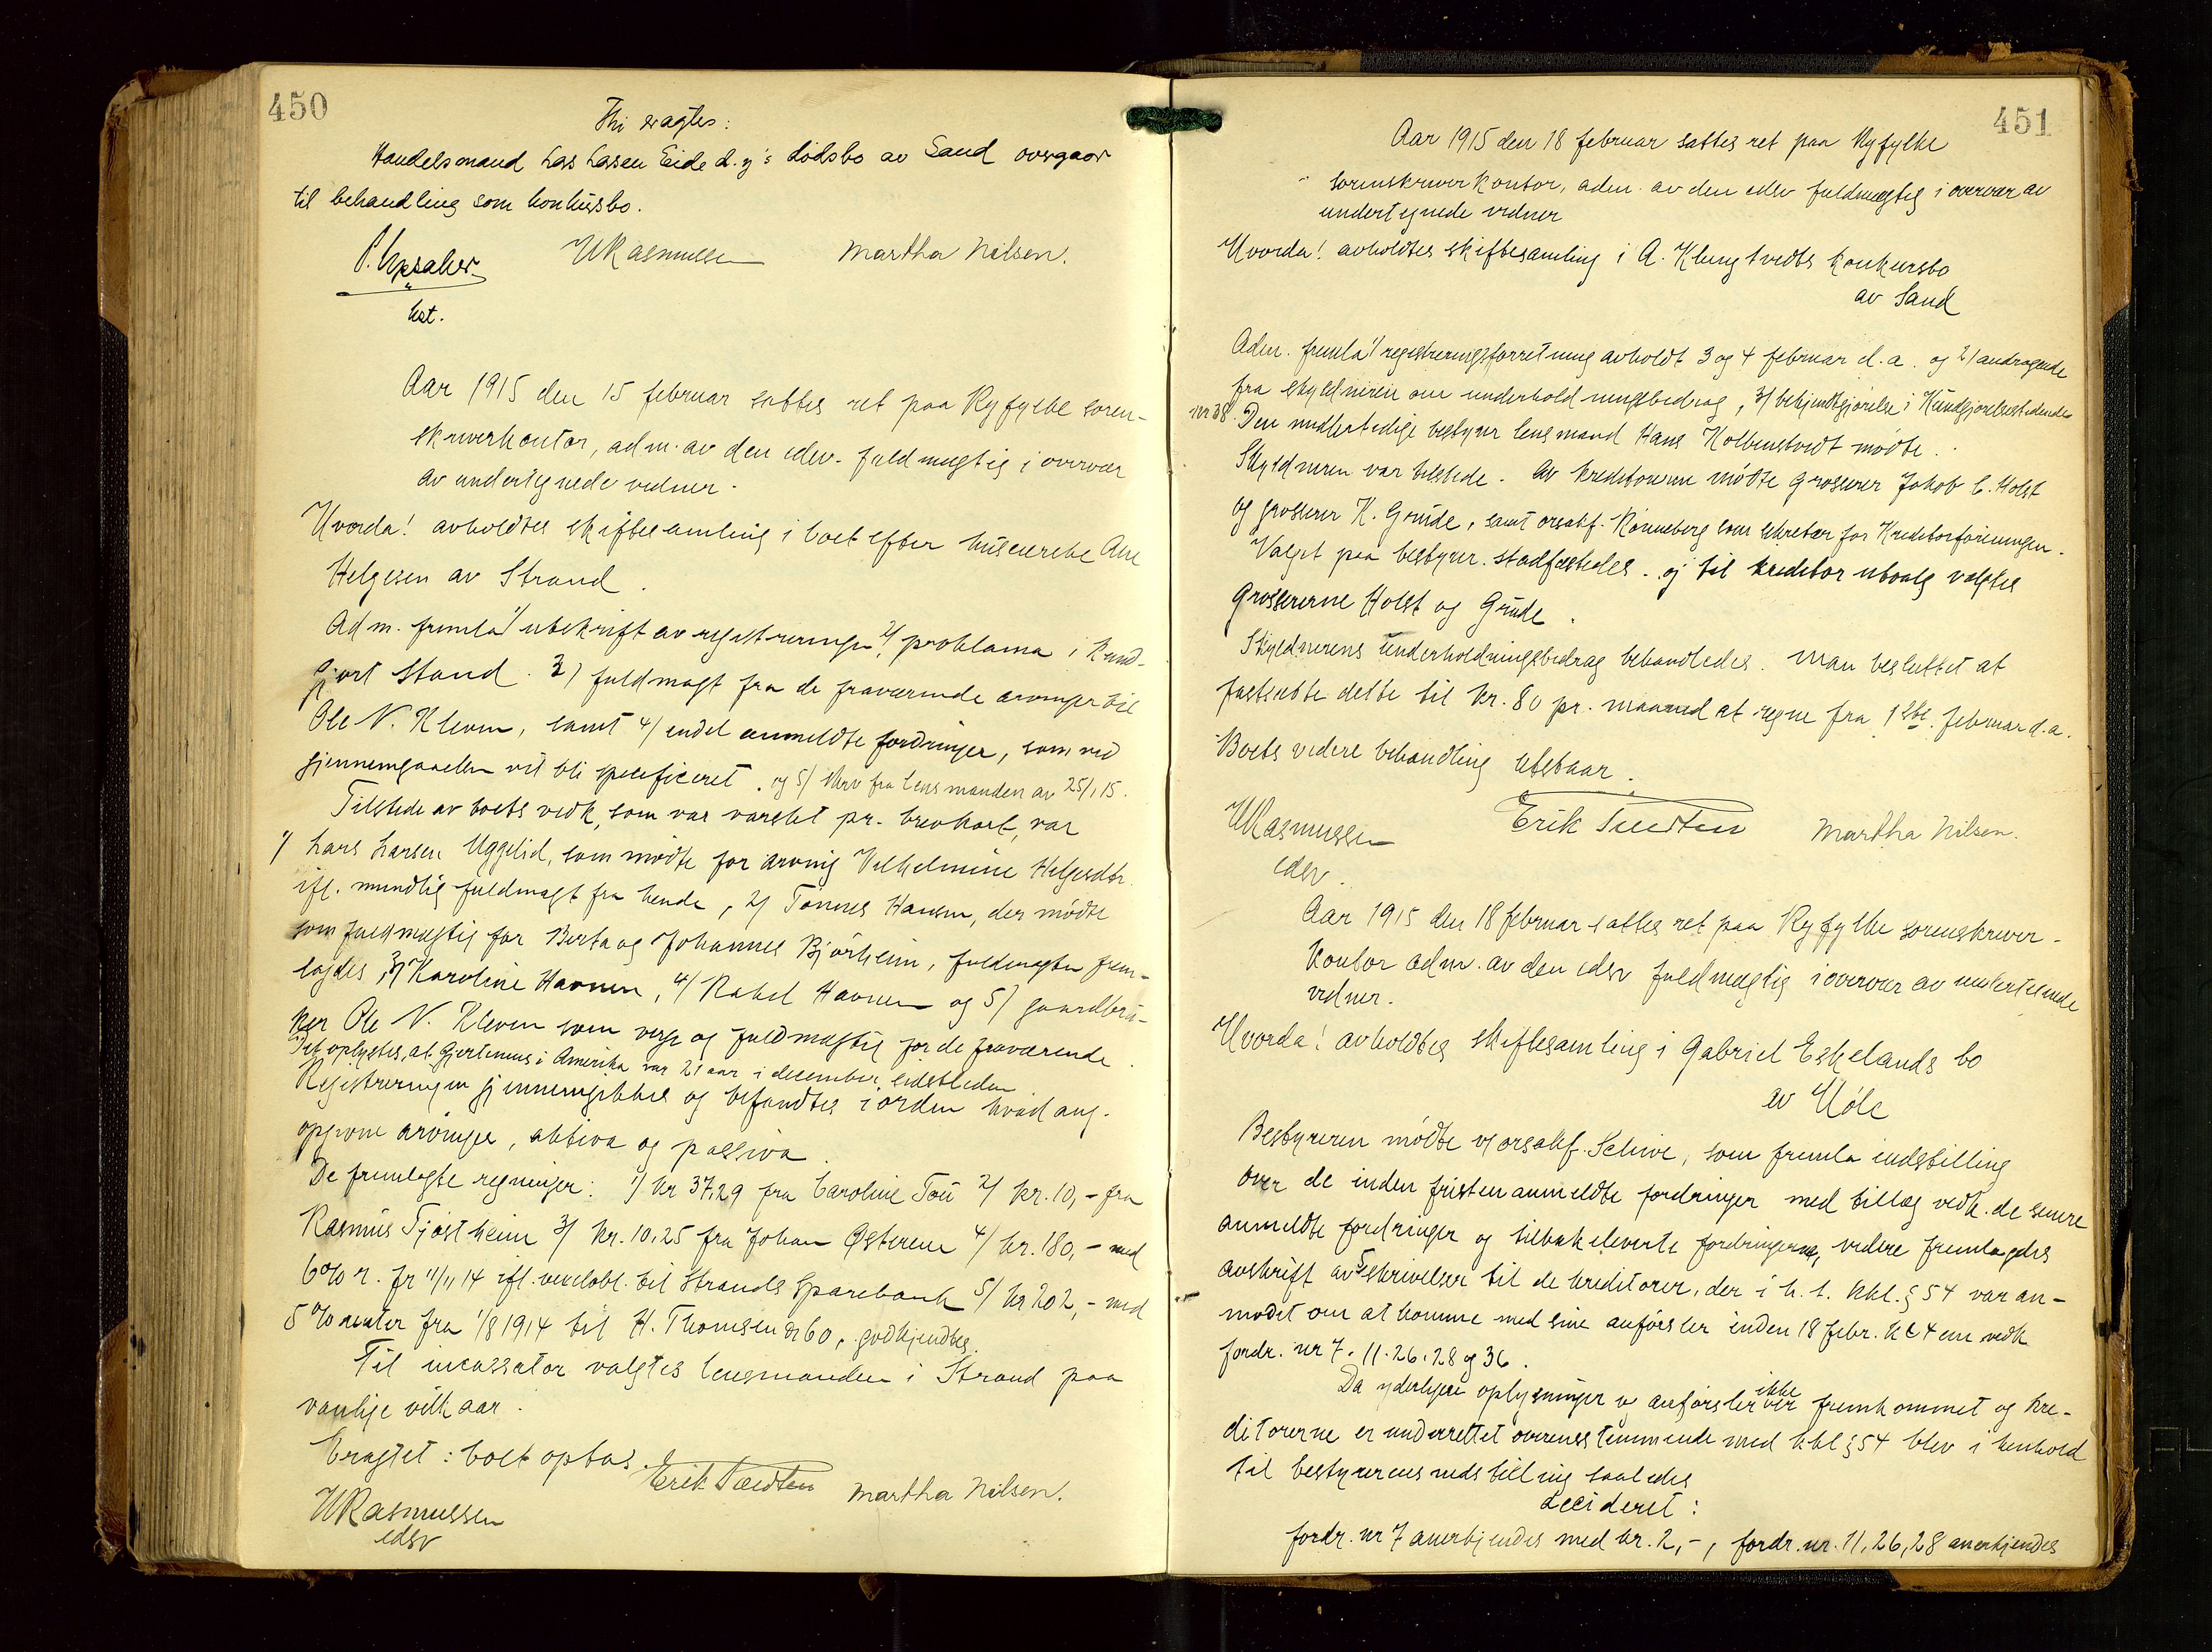 450
Thi eragtes:
Handelsmand Las Lasen Eide d.y's dødsbo av Sand overgaar
til behandling som konkursbo.
WRasmussen Martha Nilsen.
kst.
Aar 1915 den 15 februar sattes ret paa Ryfylke soren-
skriverkontor, adm. av den edsv. fuldmægtig i overvær
av undertegnede vidner.
Hvorda! avholdtes skiftesamling i boet efter huseierske Ane
Helgesen av Strand.
Adm. fremla 1/ utskrift av registreringen 2/ proklama i kund-
gjort stand. 3) fuldmagt fra de fraværende arvinger til
Ole N. Kleven, samt 4/ endel anmeldte fordringer, som ved
gjennemgaaelsen vil bli specificeret. og 5/ skriv fra lensmanden av 25/1 15.
Tilstede av boets vedk, som var varslet pr. brevkort, var
1/ Lars Larsen Uggelid, som mødte for arving Vilhelmine Helgesdtr.
ifl. mundtlig fuldmagt fra hende, 2/ Tønnes Hansen, der mødte
som fuldmægtig for Berta og Johannes Bjørheim, fuldmagten frem-
lagdes, 3/ Karoline Havnen, 4/ Rakel Havnen og 5) gaardbru-
ker Ole N. Kleven som verge og fuldmægtig for de fraværende.
Det oplystes, at Gjertinius i Amerika var 21 aar i december sidstleden
Registreringen gjennemgikkes og befandtes i orden hvad ang.
opgivne arvinger, aktiva og passiva.
De fremlagte regninger: 1/ kr 37,29 fra Caroline Tou 2/ kr. 10,- fra
Rasmus Tjøstheim 3/ kr. 10,25 fra Johan Østerein 4/ kr. 180,- med
6% r. fr 11/11 14 ifl. vexelobl. til Strands Sparebank 5/ kr 202,- med
5% renter fra 1/8 1914 til H. Thomsen godkjendtes.
Til incassator valgtes lensmanden i Strand paa
vanlige vilkaar.
Eragtet: boet optas.
WRasmussen Erik Tveiten Martha Nilsen.
edsv
451
Aar 1915 den 18 februar sattes ret paa Ryfylke
sorenskriverkontor, adm. av den edsv fuldmægtig i overvær av
undertegnede vidner
Hvorda! avholdtes skiftesamling i A. Klungtvedts konkursbo
av Sand
Adm. fremla 1/ registreringsforretning avholdt 3 og 4 februar d.a. og 2/ andragende
fra skyldneren om underholdningsbidrag, 3/ bekjendtgjørelse i Kundgjørelsestidende
nr 38. Den midlertidige bestyrer lensmand Hans Kolbenstvedt mødte.
Skyldneren var tilstede. Av kreditorerne mødte grosserer Jakob C. Holst
og grosserer K. Grude, samt orsakf. Rønneberg som sekretær for Kreditorforeningen.
Valget paa bestyrer stadfæstedes. og til kreditorutvalg valgtes
Grossererne Holst og Grude.
Skyldnerens underholdningsbidrag behandledes. Man besluttet at
fastsætte dette til kr. 80 pr. maaned at regne fra 1ste februar d.a.
Boets videre behandling utstaar.
WRasmussen Erik Tveiten Martha Nilsen.
edsv.
Aar 1915 den 18 februar sattes ret paa Ryfylke sorenskriver-
kontor adm. av den edsv fuldmægtig i overvær av undertegnede
vidner.
Hvorda! avholdtes skiftesamling i Gabriel Eskelands bo
av Høle
Bestyreren mødte v/ orsakf. Schive, som fremla indstilling
over de inden fristen anmeldte fordringer med tillæg vedk. de senere
anmeldte fordringer og tilbakeleverte fordringerne, videre fremlagdes
avskrift av 5 skrivelser til de kreditorer, der i h. t. kkl. § 54 var an-
modet om at komme med sine anførsler inden 18 febr. vedk
fordr. nr 7. 11. 26. 28 og 36.
Da yderligere oplysninger og anførsler ikke er fremkommet og kre-
ditorerne er underrettet overensstemmende med kkl § 54 blev i henhold
til bestyrerens indstilling saaledes
decideret:
fordr. nr 7 anerkjendes med kr. 2,-, fordr. nr. 11, 26, 28 anerkjendes